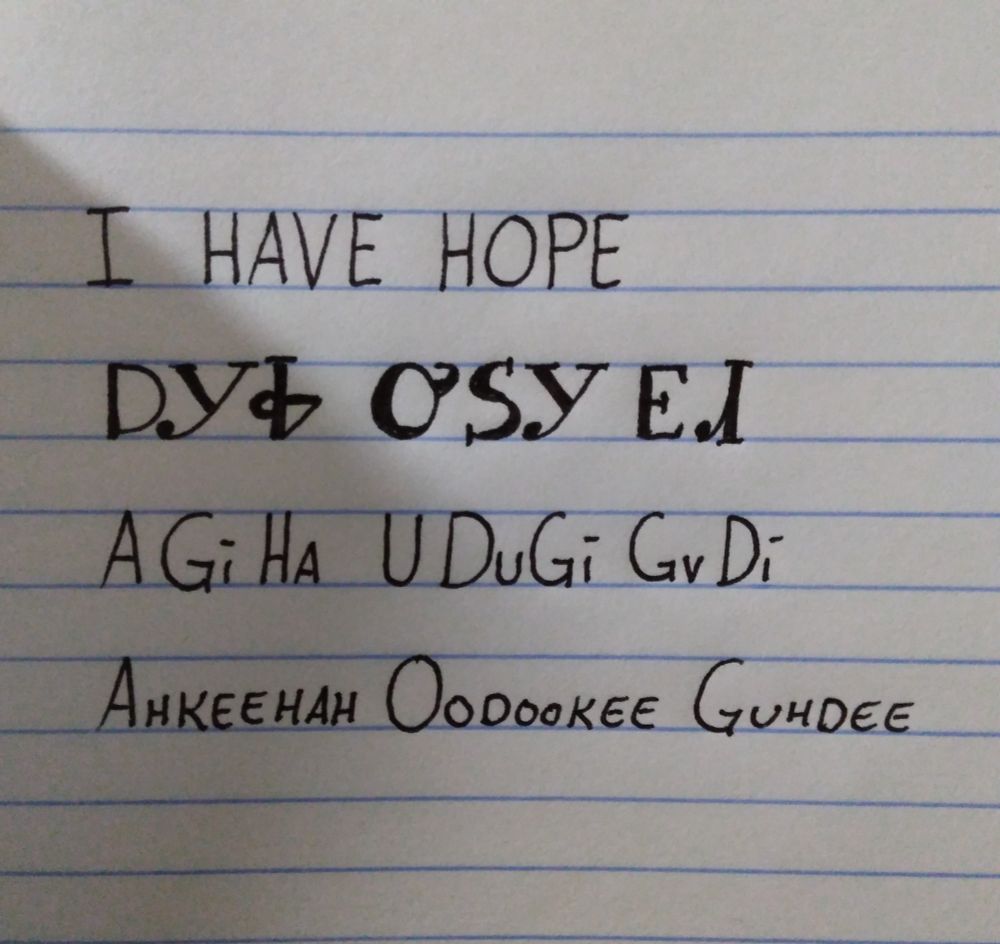 I HAVE HOPE
ᎠᎩᎭ ᎤᏚᎩ ᎬᏗ
A Gi Ha U DuGi GvDi
AHKEEHAH OODOOKEE GUHDEE